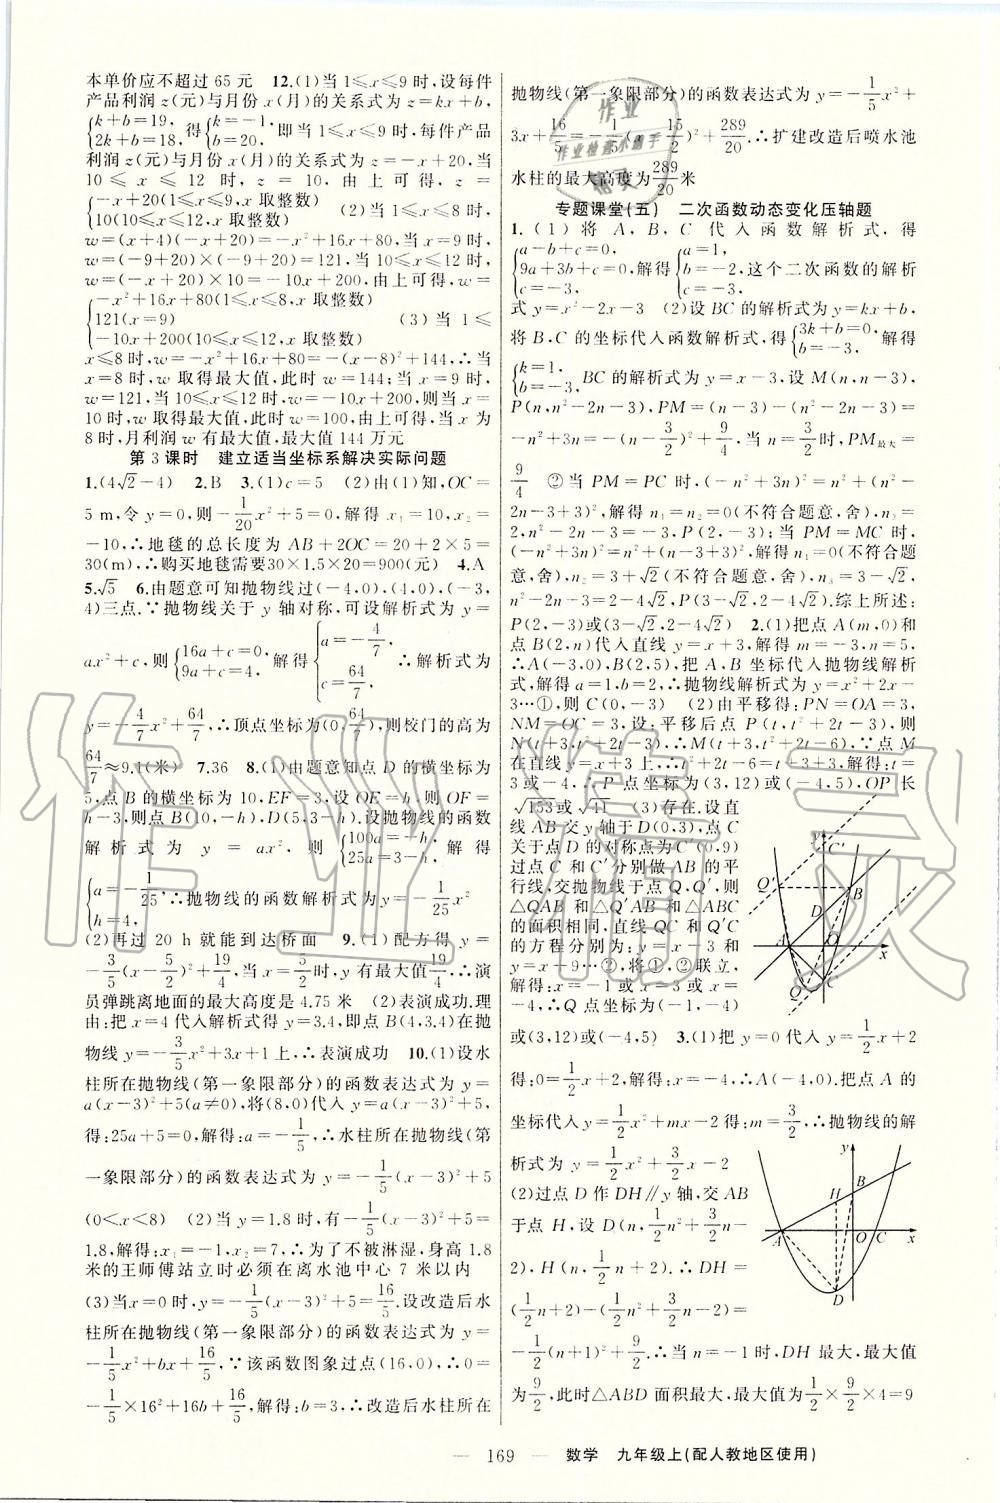 本单价应不超过 65 元　12.(1)当 1≤x≤9 时,设每件
产品利润 z(元)与月份 x(月)的关系式为 z=kx+b,
{k+b=19, 2k+b=18, 得{k=-1, b=20, 即当 1≤x≤9 时,每件产品
利润 z(元)与月份 x(月)的关系式为 z=-x+20,当
10 ≤ x ≤ 12 时, z = 10, 由上可得, z =
{-x+20(1≤x≤9,x 取整数) 10(10≤x≤12,x 取整数)　(2)当 1≤x≤8 时,
w=(x+4)(-x+20)=-x²+16x+80,当 x=9 时,
w=(-9+20)×(-9+20)=121,当 10≤x≤12 时,
w=(-x+20)×10=-10x+200,由上可得,w=
{-x²+16x+80(1≤x≤8,x 取整数) 121(x=9) -10x+200(10≤x≤12,x 取整数)　(3)当 1≤
x≤8 时,w=-x²+16x+80=-(x-8)²+144,∴当
x=8 时,w 取得最大值,此时 w=144;当 x=9 时,
w=121,当 10≤x≤12 时,w=-10x+200,则当 x=
10 时,w 取得最大值,此时 w=100,由上可得,当 x 为
8 时,月利润 w 有最大值,最大值 144 万元
第 3 课时　建立适当坐标系解决实际问题
1.(4√2-4)　2.B　3.(1)c=5　(2)由(1)知,OC=
5 m,令 y=0,则-1/20x²+5=0,解得 x₁=10,x₂=
-10,∴地毯的总长度为 AB+2OC=20+2×5=
30(m),∴购买地毯需要30×1.5×20=900(元)　4.A
5.√5　6.由题意可知抛物线过(-4,0),(4,0),(-3,
4)三点.∵抛物线关于 y 轴对称,可设解析式为 y=
ax²+c,则{16a+c=0, 9a+c=4. 解得{a=-4/7, c=64/7.∴解析式为
y=-4/7x²+64/7,∴顶点坐标为(0,64/7),则校门的高为
64/7≈9.1(米)　7.36　8.(1)由题意知点 D 的横坐标为
5,点 B 的横坐标为 10,EF=3,设 OE=h,则 OF=
h-3,则点 B(10,-h),D(5,3-h).设抛物线的函数
解析式为 y=ax²,则{100a=-h, 25a=3-h, 解得
{a=-1/25, h=4, ∴抛物线的函数解析式为 y=-1/25x²
(2)再过 20 h 就能到达桥面　9.(1)配方得 y=
-3/5(x-5/2)²+19/4,当 x=5/2时,y 有最大值19/4,∴演
员弹跳离地面的最大高度是 4.75 米　(2)表演成功.理
由:把 x=4 代入解析式得 y=3.4,即点 B(4,3.4)在抛
物线 y=-3/5x²+3x+1 上,∴表演成功　10.(1)设水
柱所在抛物线(第一象限部分)的函数表达式为 y=
a(x-3)²+5(a≠0),将(8,0)代入 y=a(x-3)²+5,
得:25a+5=0,解得:a=-1/5,∴水柱所在抛物线(第
一象限部分)的函数表达式为 y=-1/5(x-3)²+5
(0<x<8)　(2)当 y=1.8 时,有-1/5(x-3)²+5=
1.8,解得:x₁=-1,x₂=7,∴为了不被淋湿,身高 1.8
米的王师傅站立时必须在离水池中心 7 米以内
(3)当x=0时,y=-1/5(x-3)²+5=16/5.设改造后水
柱所在抛物线(第一象限部分)的函数表达式为 y=
-1/5x²+bx+16/5,∵该函数图象过点(16,0),∴0=
-1/5×16²+16b+16/5,解得:b=3,∴改造后水柱所在
抛物线(第一象限部分)的函数表达式为 y=-1/5x²+
3x+16/5=-1/5(x-15/2)²+289/20.∴扩建改造后喷水池
水柱的最大高度为289/20米
专题课堂(五)　二次函数动态变化压轴题
1.(1)将 A, B, C 代入函数解析式,得
{a-b+c=0, 9a+3b+c=0, c=-3, 解得{a=1, b=-2, c=-3, 这个二次函数的解析
式 y=x²-2x-3　(2)设 BC 的解析式为 y=kx+b,
将 B,C 的坐标代入函数解析式,得{3k+b=0, b=-3, 解得
{k=1, b=-3, BC 的解析式为 y=x-3,设 M(n,n-3),
P(n,n²-2n-3),PM=(n-3)-(n²-2n-3)=
-n²+3n=-(n-3/2)²+9/4,当 n=3/2时,PM最大=
9/4　②当 PM=PC 时,(-n²+3n)²=n²+(n²-
2n-3+3)²,解得 n₁=n₂=0(不符合题意,舍),n₃=
2,n²-2n-3=-3,P(2,-3);当 PM=MC 时,
(-n²+3n)²=n²+(n-3+3)²,解得 n₁=0(不符合题
意,舍),n₂=3+√2(不符合题意,舍),n₃=3-√2,
n²-2n-3=2-4√2,P(3-√2,2-4√2).综上所述:
P(2,-3)或(3-√2,2-4√2)　2.(1)把点 A(m,0)和
点 B(2,n)代入直线 y=x+3,解得:m=-3,n=5,
∴A(-3,0),B(2,5),把 A,B 坐标代入抛物线解析
式,解得:a=1,b=2,∴抛物线解析式为 y=x²+2x-
3…①,则 C(0,-3)　(2)由平移得:PN=OA=3,
NM=OC=3,设:平移后点 P(t,t²+2t-3),则
N(t+3,t²+2t-3),∴M(t+3,t²+2t-6),∵点 M
在直线 y=x+3 上,∴t²+2t-6=t+3+3,解得:t=
3 或-4,∴P 点坐标为(3,12)或(-4,5),OP 长
√153或√41　(3)存在.设直
线 AB 交 y 轴于 D(0,3),点 C
关于点 D 的对称点为 C′(0,9)
过点 C 和 C′分别做 AB 的平
行线,交抛物线于点 Q、Q′,则
△QAB 和△Q′AB 和△ABC
的面积相同,直线 QC 和 Q′C
的方程分别为:y=x-3 和
y=x+9…②,将①,②联立,
解得:x=-1 或 x=3 或 x=
-4,∴Q 点坐标为(-1,-4)
或(3,12)或(-4,5)　3.(1)把 y=0代入 y=1/2x+2
得:0=1/2x+2,解得:x=-4,∴A(-4,0).把点 A 的
坐标代入 y=1/2x²+mx-2 得:m=3/2,∴抛物线的解
析式为 y=1/2x²+3/2x-2
(2)过点 D 作 DH∥y 轴,交 AB
于点 H,设 D(n,1/2n²+3/2n-
2),H(n,1/2n+2).∴DH=
(1/2n+2)-(1/2n²+3/2n-2)=
-1/2(n+1)²+9/2.∴当 n=-1时,DH 最大,最大值
为9/2,此时△ABD 面积最大,最大值1/2×9/2×4=9
Q′ C′ D B A O x Q C
H B A O C x D
— 169 —　数学　九年级上(配人教地区使用)
作业精灵
作业
作业检查小助手
精灵